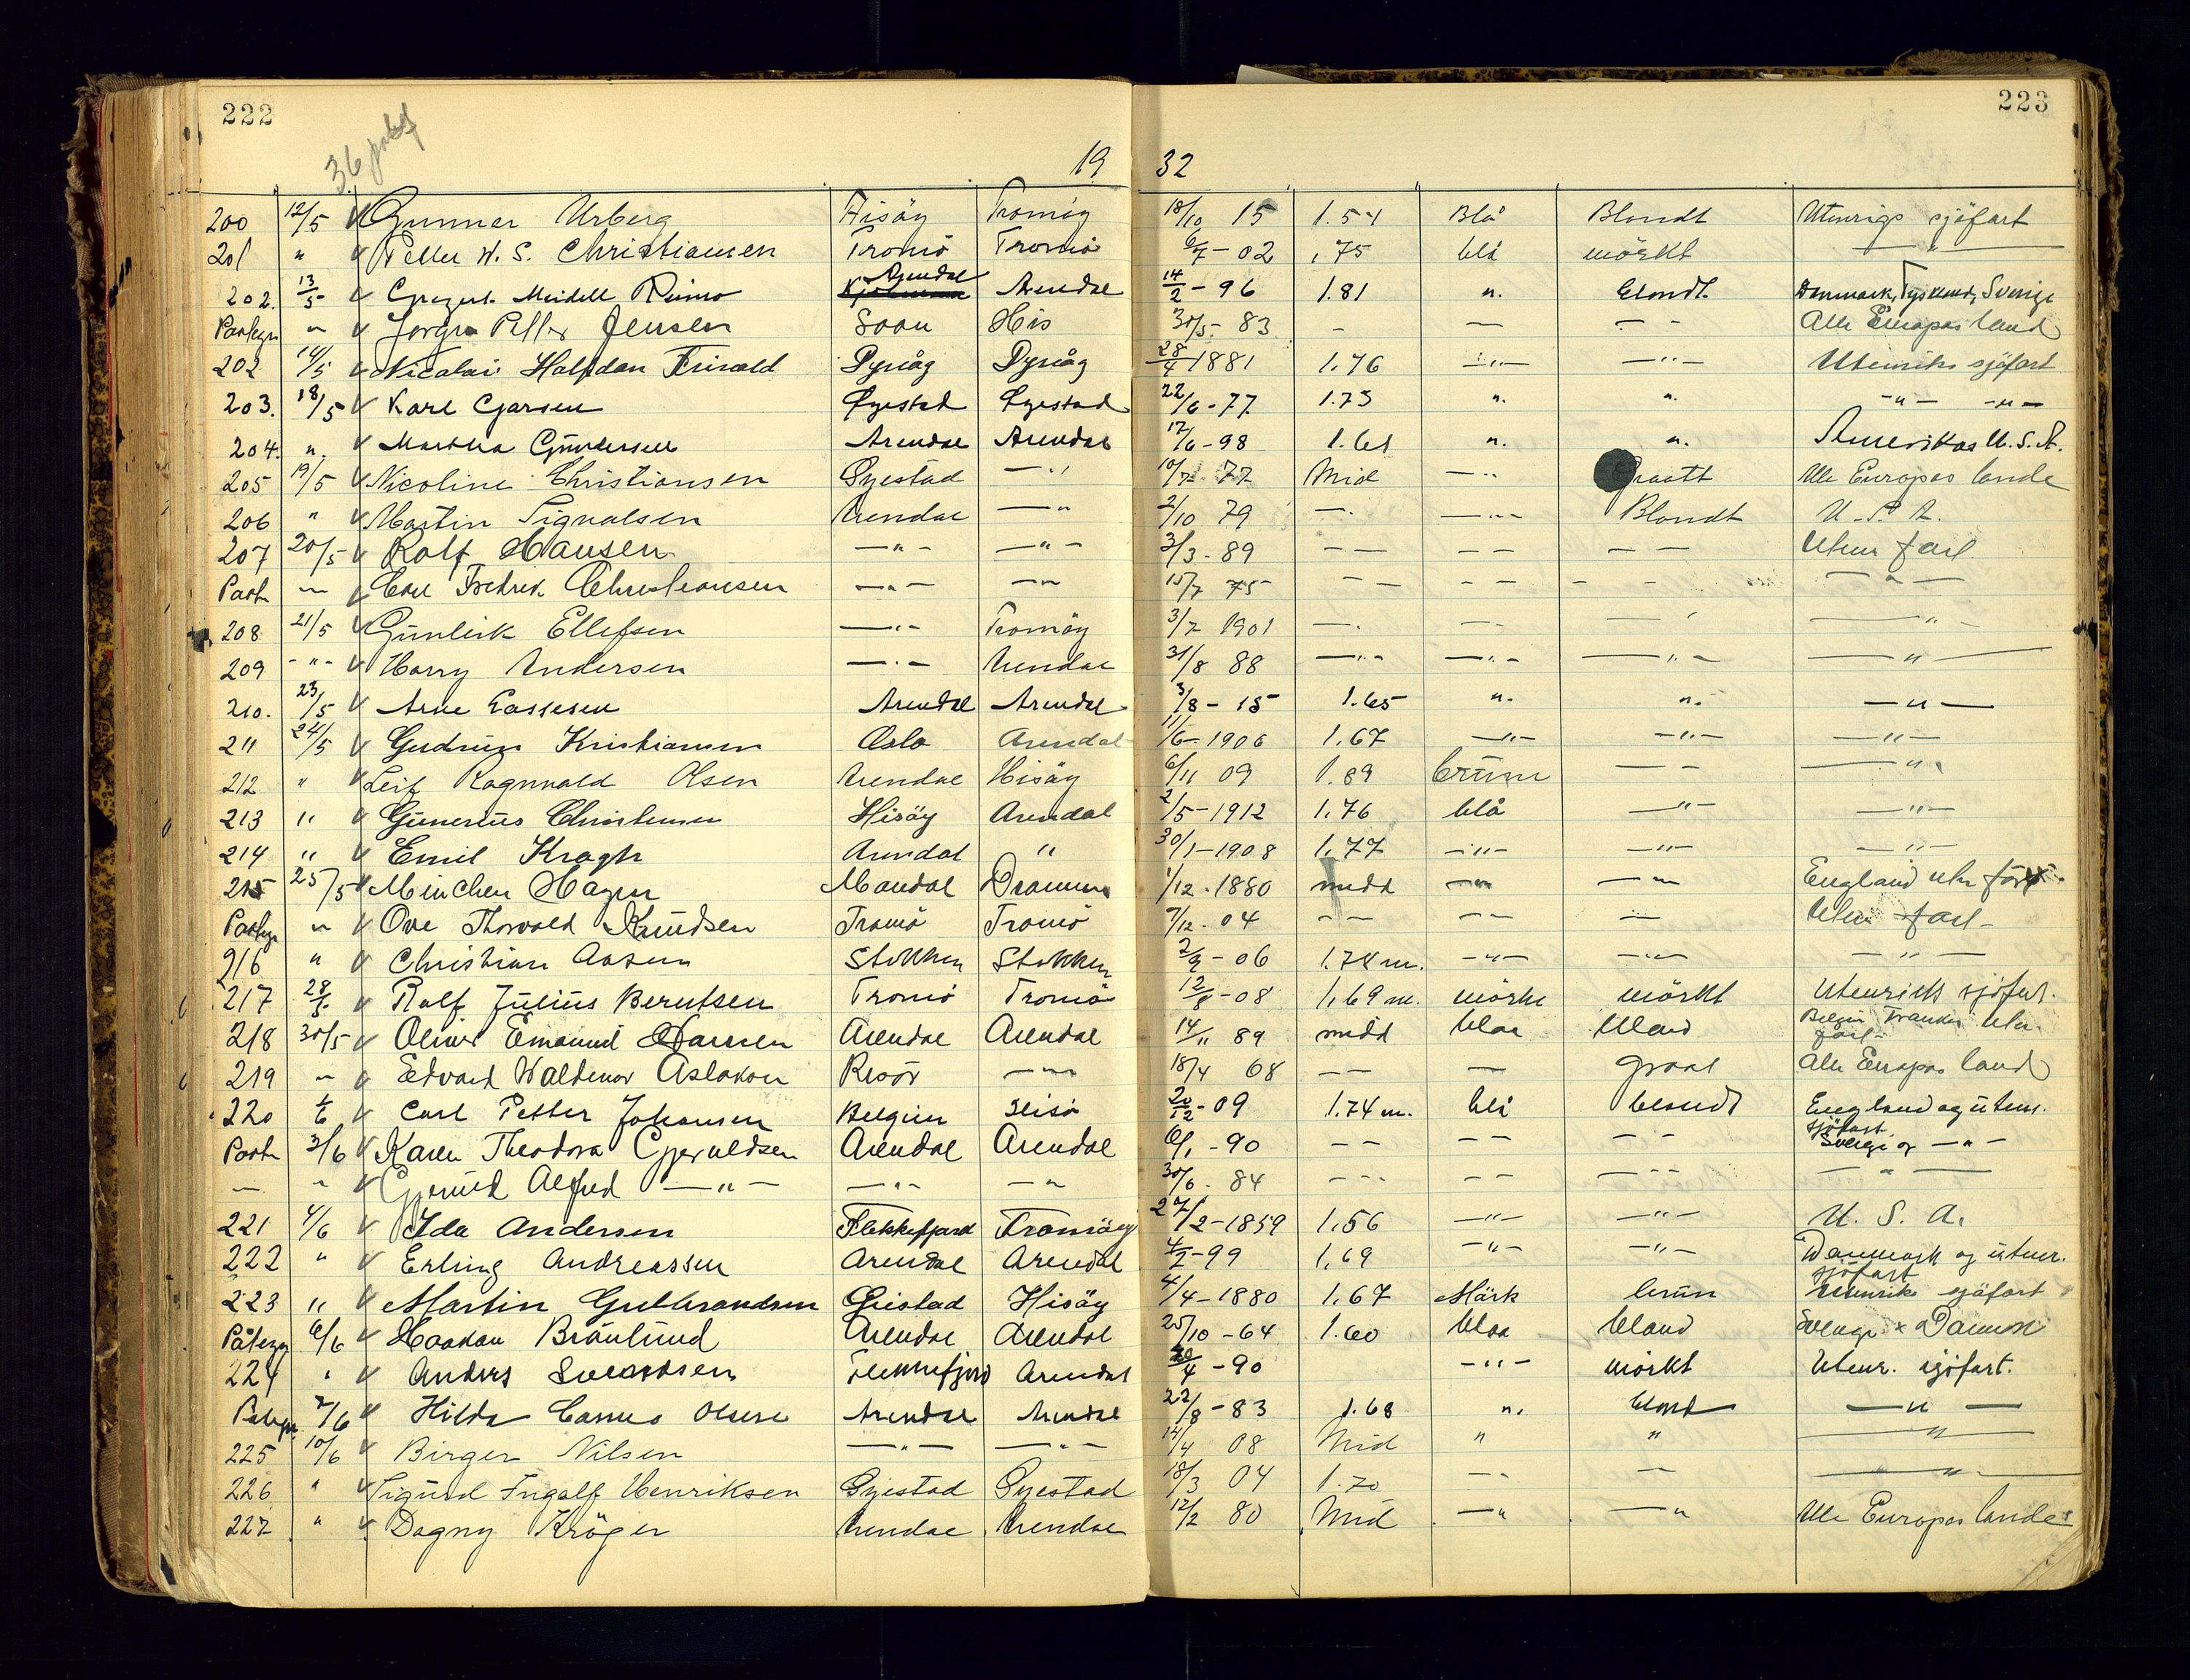 222
223
36
19 32
200 12/5 Gunnar Urberg Hisöy Tromöy 18/10 15 1.54 Blå Blondt Utenrigs sjöfart
201 " Petter W. S. Christiansen Tromö Tromö 6/7 - 02 ,75 blå mörkt — " —
202. 13/5 Meidell Arendal Arendal 14/2 - 96 1.81 ". blondt. Danmark, Tyskland, Sverige
" Petter Jensen Soon His 30/5 - 83 - — - - Alle Europas land
202 14/5 Nicolai Halfdan Friwald Dypvåg Dypvåg 28/4 1881 1.76 —"— —"— Utenriks sjöfart
203. 18/5 Karl Öyestad Öyestad 22/6 - 77 1.73 ". ". —"— —"—
204. ". Martha Gundersen Arendal Arendal 17/6 - 98 1.61 ". ". Amerikas U.S.A.
205 19/5 Nicoline Christiansen Öyestad —"— 10/7 77 Mid —"— Graatt Alle Europas lande
206 " Martin Sigvalsen Arendal —"— 2/10 79 —"— —"— Blondt U.S.A.
207 20/5 Rolf Hansen —"— —"— 3/3 - 89 — — — — — — Utenr fart
— Carl Fredrik Christiansen —"— —"— 15/7 75 — — — — — — — " —
208 21/5 Gunleik Ellefsen —"— Tromöy 3/7 1901 —"— —"— —"— —"—
209 —"— Harry Andersen —"— Arendal 31/8 88 —"— —"— —"— —"—
210. 23/5 Arne Lassesen Arendal Arendal 3/8 - 15 1.65 ". ". —"—
211 24/5 Gudrun Kristiansen Oslo Arendal 11/6 - 1906 1,67 —"— —"— —"—
212 " Leif Ragnvald Olsen Arendal Hisöy 6/11 09 1.89 brune — — —"—
213 " Gunerius Christensen Hisöy Arendal 2/5 - 1912 1,76 blå —"— —"—
214 " Emil Kragh Arendal " 30/1 - 1908 1,77 —"— —"— —"—
215 25/5 Minchen Hagen Mandal Drammen 1/12 - 1880 midd —"— —"— England utr fart
" Ove Thorvald Knudsen Tromö Tromö 7/12 - 04 — — — — — Utenr fart
216 " Christian Aasen Stokken Stokken 2/9 - 06 1.74 m. —"— —"— —"—
217 28/5 Rolf Julius Berntsen Tromö Tromö 12/8 - 08 1,69 m. mörke mörkt Utenriks sjöfart.
218 30/5 Oliver Emanuel Hansen Arendal Arendal 14/11 89 midd blaa bland Belgien Frankr Utr. fart
219 — Edvard Waldemar Aslakson Risör —"— 18/4 68 — — — graat Alle Europas land
220 1/6 Carl Petter Johansen Belgien Hisö 20/12 - 09 1.74 m. blå blondt England og utenr. sjöfart
3/6 Karen Theodora Gjeruldsen Arendal Arendal 6/1 - 90 — — — — — — Sverige og —"—
— " Gjerud Alfred —"— —"— —"— 30/6 - 84 — — — — — — —"—
221 4/6 Ida Andersen Flekkefjord Tromöy 27/2 - 1859 1,56 —"— —"— U. S. A.
222 " Erling Andreassen Arendal Arendal 4/2 - 99 1,69 —"— —"— Danmark og utenr. sjöfart
223 " Martin Gulbrandsen Öiestad Hisöy 4/4 - 1880 1,67 Mörk brun Utenriks sjöfart
6/6 Haakon Brönlund Arendal Arendal 25/10 - 64 1.60 blaa bland Sverige x Danmk
224 " Anders Svendsen Flekkefjord Arendal 20/4 - 90 —"— mörkt Utenr. sjöfart.
7/6 Hilda Olsen Arendal Arendal 22/8 - 83 1.68 ". blond —"—
225 10/6 Birger Nilsen —"— —"— 14/4 08 Mid " " —"—
226 " Sigurd Ingolf Henriksen Öyestad Öyestad 18/3 04 1.70 —"— — —"—
227 " Dagny Kröger Arendal Arendal 12/2 80 Mid —"— —"— Alle Europas lande